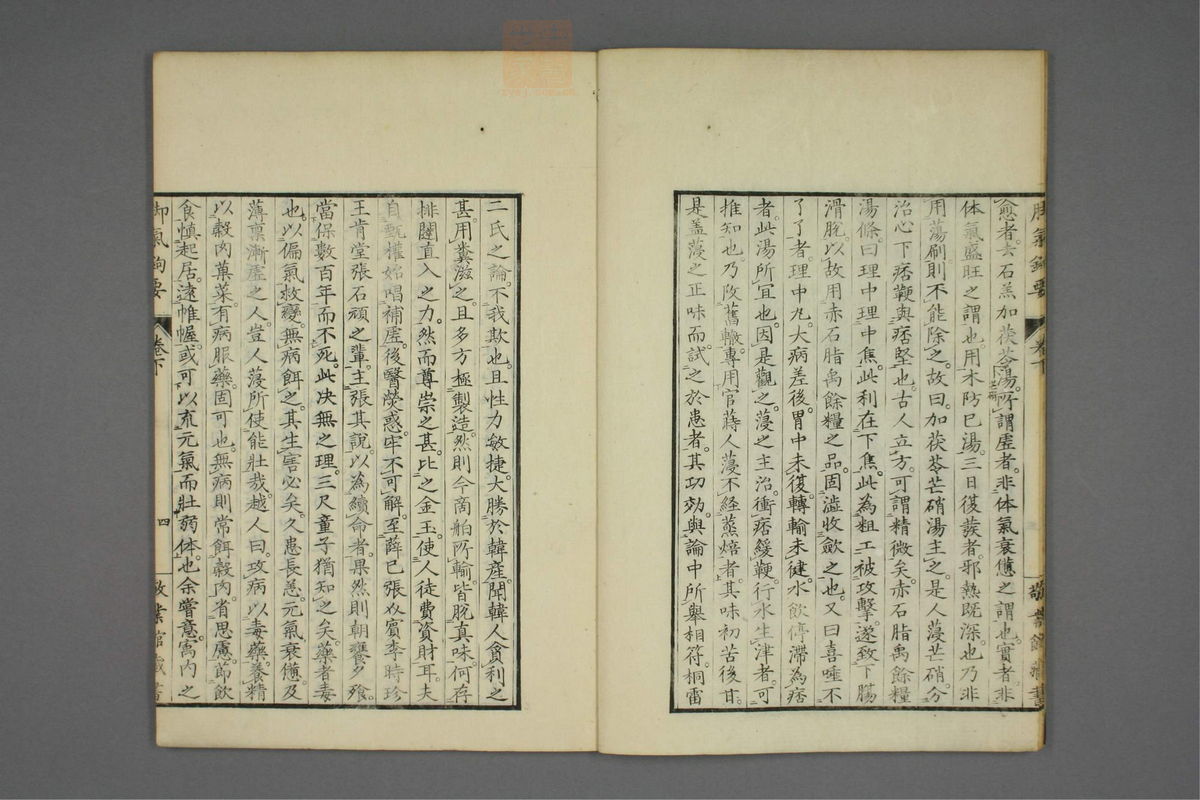 脚氣鉤要 卷下 敬業館藏書
愈者去石羔加茯苓湯所謂虚者非体氣衰憊之謂也實者非
体氣盛旺之謂也用木防已湯三日復發者邪熱既深也乃非
用蕩刷則不能除之故曰加茯苓芒硝湯主之是人薓芒硝分
治心下痞鞕與痞堅也古人立方可謂精微矣赤石脂禹餘糧
湯條曰理中理中焦此利在下焦此為粗工被攻擊遂致下腸
滑脫以故用赤石脂禹餘糧之品固澁收歛之也又曰喜唾不
了了者理中丸大病差後胃中未復轉輸未健水飲停滯為痞
者此湯所宜也因是觀之薓之主治衝痞緩鞕行水生津者可
推知也乃改舊轍專用官蒔人薓不経蒸焙者其味初苦後甘
是盖薓之正味而試之於患者其功効與論中所舉相符桐雷
二氏之論不我欺也且性力敏捷大勝於韓産聞韓人貪利之
甚用糞滋之且多方極製造然則今商舶所輸皆脫真味何存
排闥直入之力然而尊崇之甚比之金玉使人徒費資財耳夫
自甄權始唱補虚後醫熒惑牢不可解至薛已張㕥賓李時珍
王肯堂張石頑之輩主張其説以為續命者果然則朝饔夕飱
當保數百年而不死此决無之理三尺童子猶知之矣藥者毒
也以偏氣救變無病餌之其生害必矣久患長恙元氣衰憊及
薄禀漸虚之人豈人薓所使能壯哉越人曰攻病以毒藥養精
以穀肉菓菜有病服藥固可也無病則常餌穀肉省思慮節飲
食慎起居遠帷幄或可以充元氣而壯弱体也余嘗意寓内之
脚氣鉤要 卷下 四 敬業館藏書